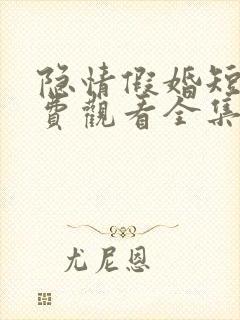 隐情假婚短
費觀看全集
尤尼恩